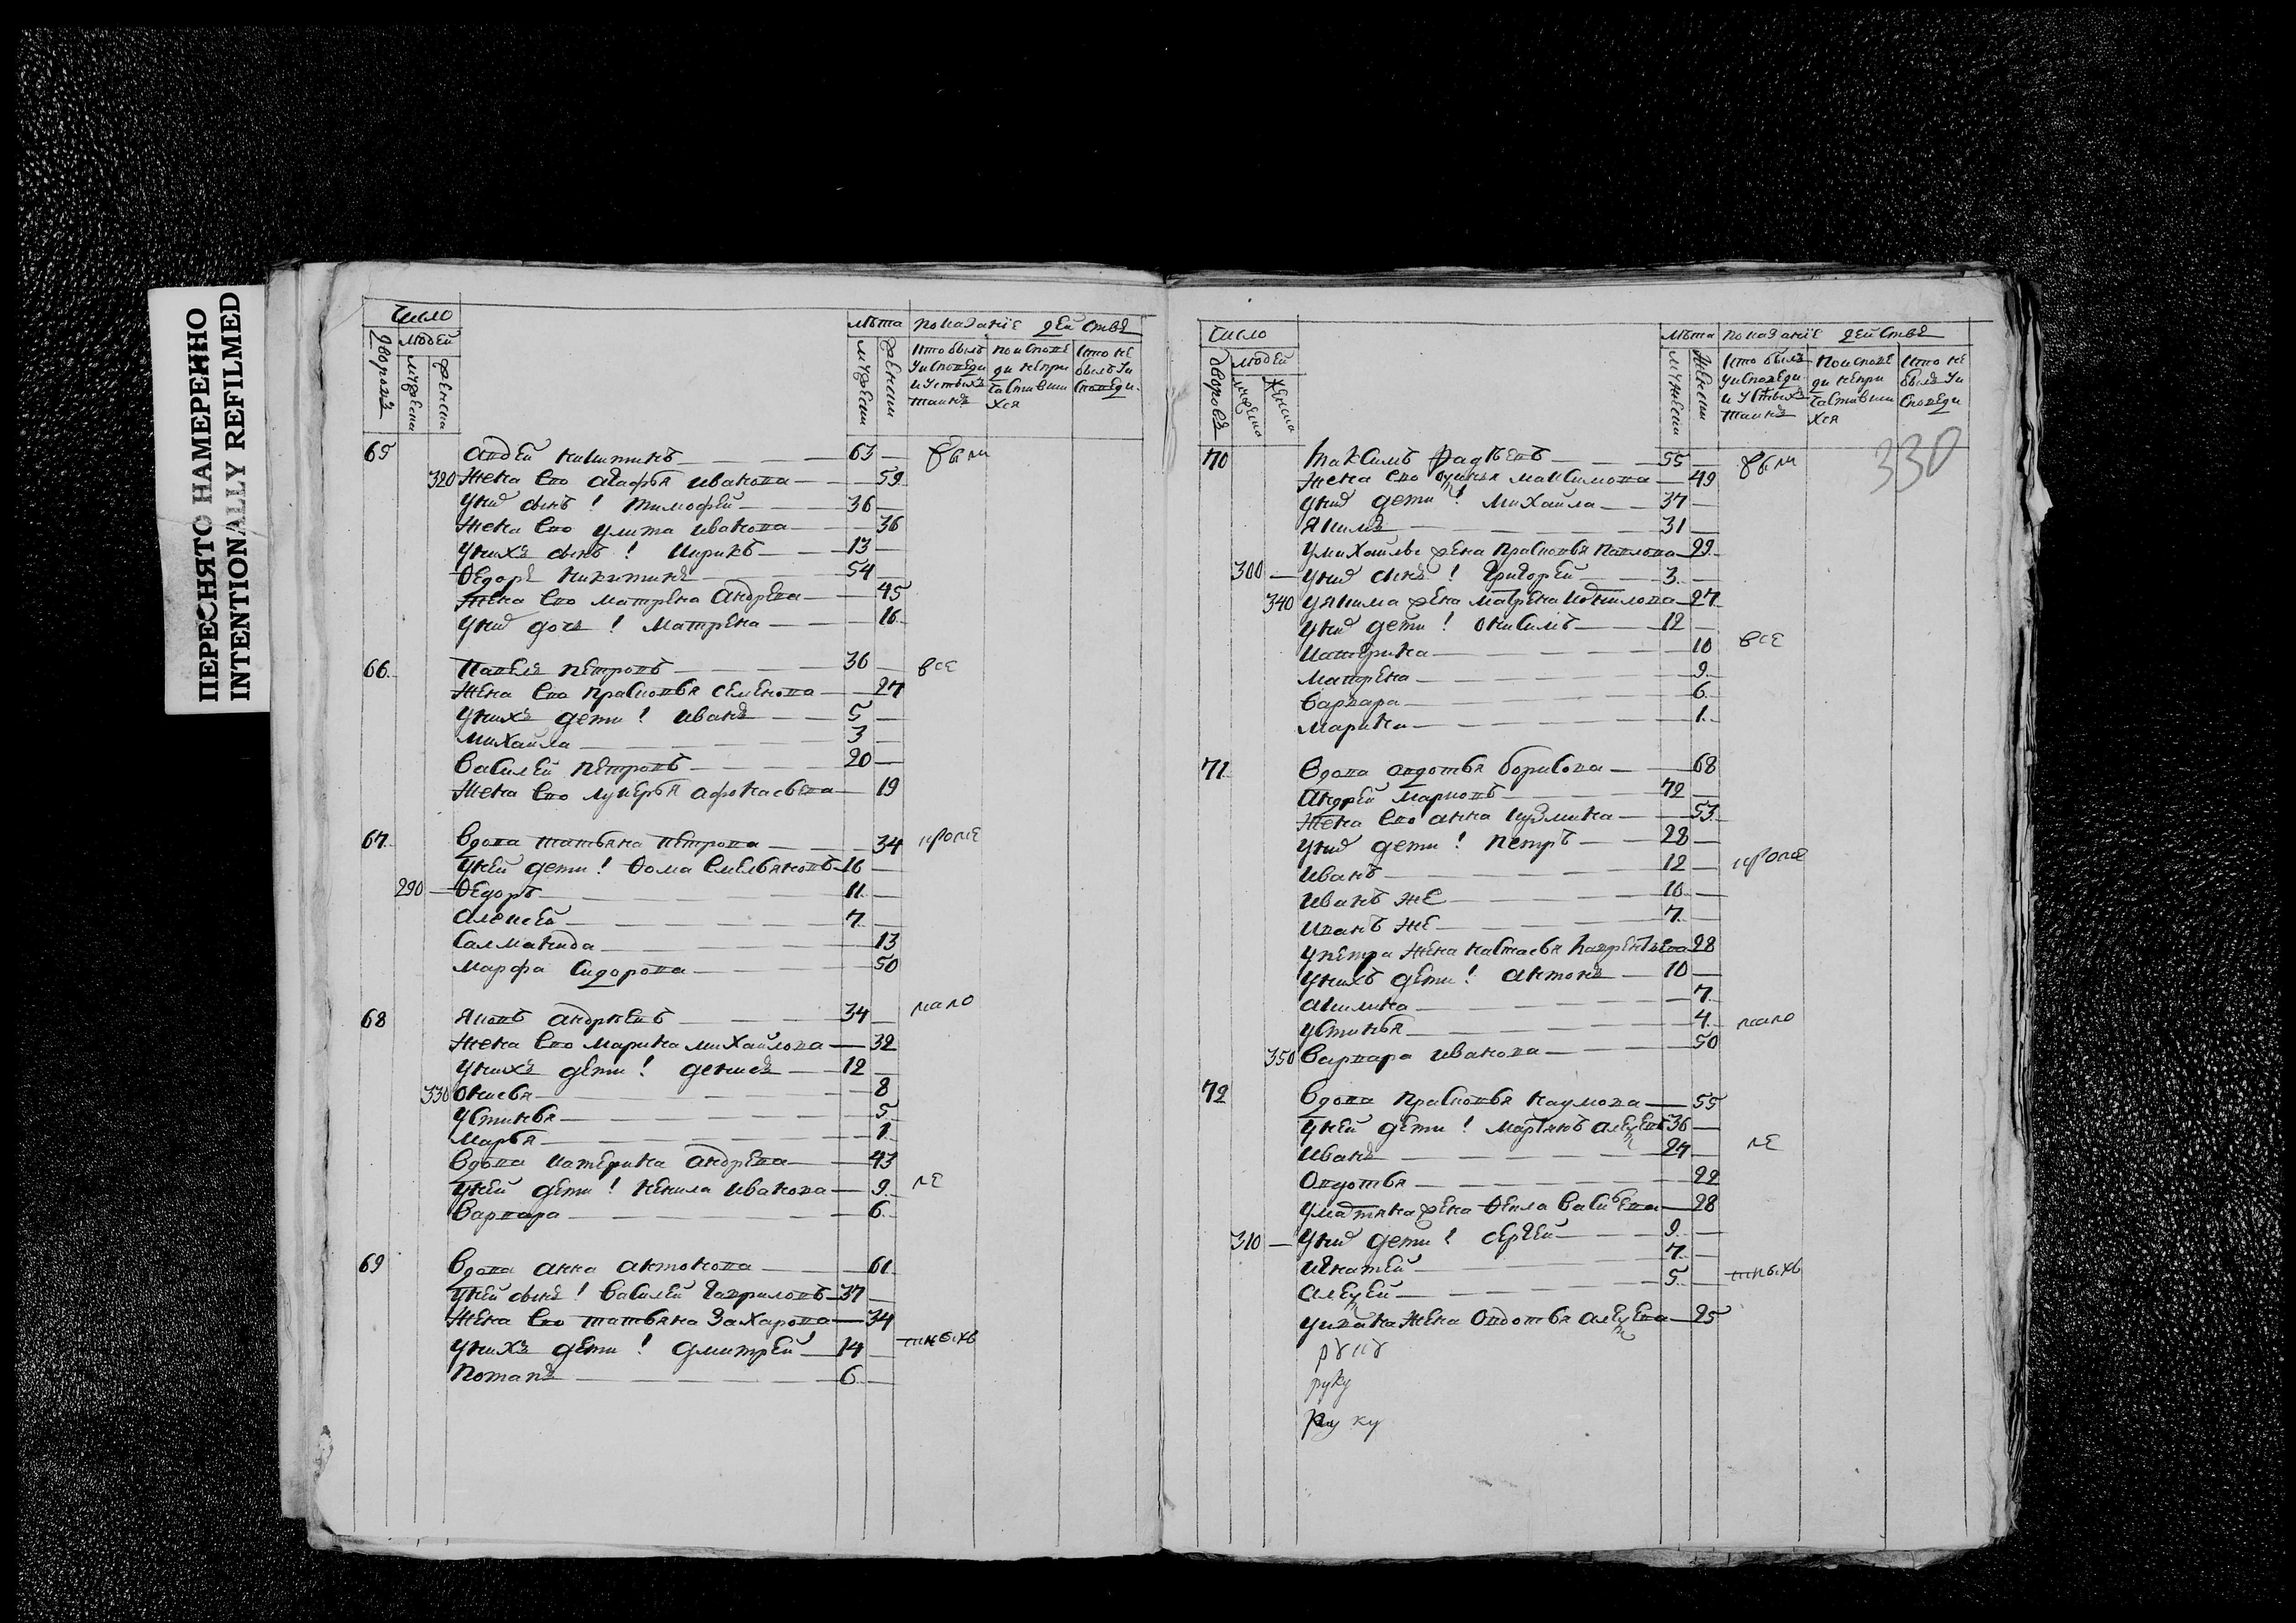 ПЕРЕСНЯТО НАМЕРЕННО
INTENTIONALLY REFILMED
Число
дворовъ
людей
мужеска
женска
лѣта
мужески
женски
показанїе действъ
кто былъ у исповеди и у святыхъ таинъ
по исповеди не причастившихся
кто не былъ у исповеди
65 Авдѣй Никитинъ 63 были
320 Жена ево Агафья Иванова 59
у нихъ сынъ ! Тимофей 36
Жена ево Улита Иванова 36
у нихъ сынъ ! Кирикъ 13
Ѳедоръ Никитинъ 54
Жена ево Матрена Андрева 45
у них дочь ! Матрена 16
66 Павелъ Петровъ 36 все
Жена ево Прасковья Семенова 27
у нихъ дети ! Иванъ 5
Михаила 3
Василей Петровъ 20
Жена ево Лукерья Афонасьева 19
67 Вдова Татьяна Петрова 34 кроме
у ней дети ! Ѳома Емельяновъ 16
290 Ѳедоръ 11
Алексей 7
Салманида 13
Марфа Сидорова 50
68 Яковъ Андрѣевъ 34 мало
Жена ево Марина Михайлова 32
у нихъ дети ! Денисъ 12
330 Оксинья 8
Устинья 5
Марья 1
Вдова Катерина Андрева 43
у ней дети ! Ненила Иванова 9 ле
Варвара 6
69 Вдова Анна Антонова 61
у ней сынъ ! Василей Гавриловъ 37
Жена ево Татьяна Захарова 34
у нихъ дети ! Дмитрей 14 тныхъ
Потапъ 6
Число
дворовъ
людей
мужеска
женска
лѣта
мужески
женски
показанїе действъ
кто былъ у исповеди и у святыхъ таинъ
по исповеди не причастившихся
кто не былъ у исповеди
330
70 Максимъ Фадѣевъ 55 были
Жена ево Максимова 49
у них дети ! Михайла 37
Якимъ 31
у Михайлы жена Прасковья Павлова 29
300 у них сынъ ! Григорей 3
340 у Якима жена Матрена 27
у них дети ! Онисимъ 12
Катерина 10 все
Матрена 9
Варвара 6
Марина 1
71 Вдова Авдотья Борисова 68
Андрей Марковъ 72
Жена ево Анна Кузмина 53
у них дети ! Петръ 28
Иванъ 12 кроме
Иванъ же 10
Иванъ же 7
у Петра жена Настасья Лаврентьева 28
у нихъ дети ! Антонъ 10
Акилина 7
Устинья 4 мало
350 Варвара Иванова 50
72 Вдова Прасковья Наумова 55
у ней дети ! Мартинъ Алексеевъ 36
Иванъ 27 ле
Овдотья 22
у Мартина жена Ѳекла Васильева 28
310 у них дети ! Сергей 9
Игнатей 7
Алексей 5 тныхъ
у Ивана жена Овдотья Алексеева 25
руку
руку
руку